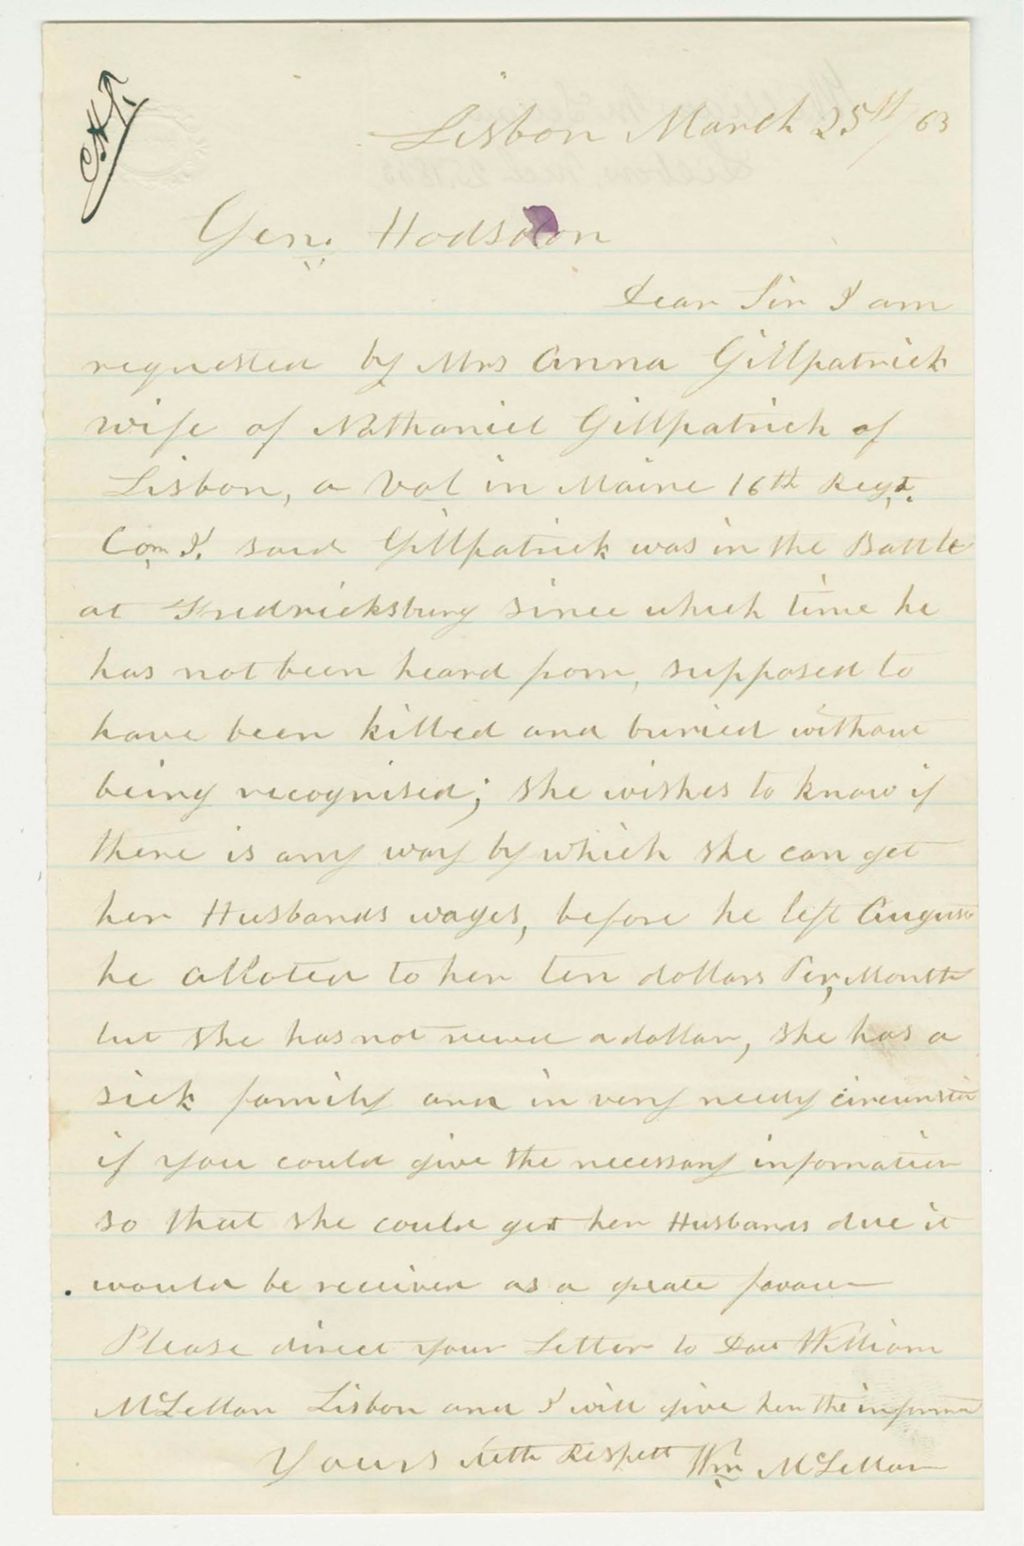 Lisbon March 25th/63
Gen. Hodsdon
Dear Sir I am
requested by Mrs Anna Gillpatrick
wife of Nathaniel Gillpatrick of
Lisbon, a Vol in Maine 16th Regt.
Com I. said Gillpatrick was in the Battle
at Fredricksburg since which time he
has not been heard from, supposed to
have been killed and buried without
being recognised; she wishes to know if
there is any way by which she can get
her Husbands wages, before he left Augusta
he alloted to her ten dollars Per, Month
but she has not recived a dollar, she has a
sick family and in very needy
if you could give the necessary information
so that she could get her Husbands due it
would be received as a grate favour
Please direct your Letter to William
McLellan Lisbon and I will give her the
Yours with Respett Wm McLellan